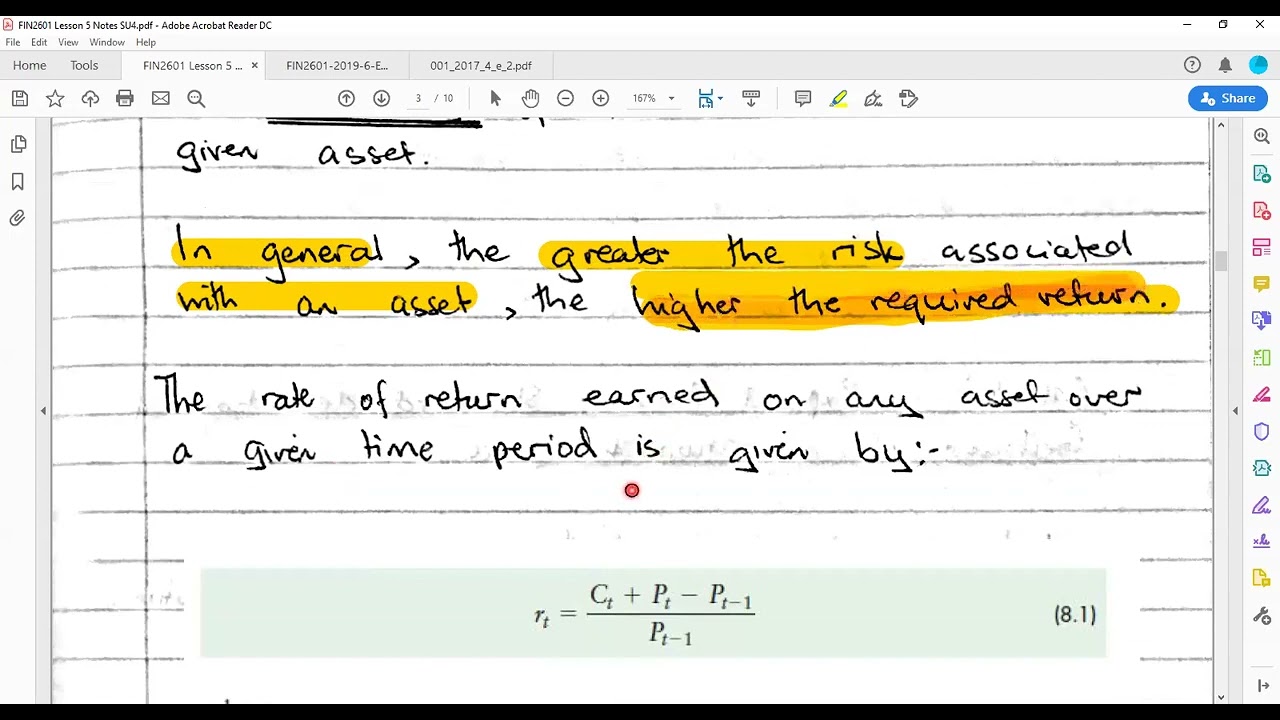 FIN2601 Lesson 5 Notes SU4.pdf - Adobe Acrobat Reader DC
File Edit View Window Help
Home Tools FIN2601 Lesson 5 ... × FIN2601-2019-6-E... 001_2017_4_e_2.pdf
3 / 10 167% Share
given asset.
In general, the greater the risk associated
with an asset, the higher the required return.
The rate of return earned on any asset over
a given time period is given by:-
r_t = (C_t + P_t − P_{t−1}) / P_{t−1} (8.1)